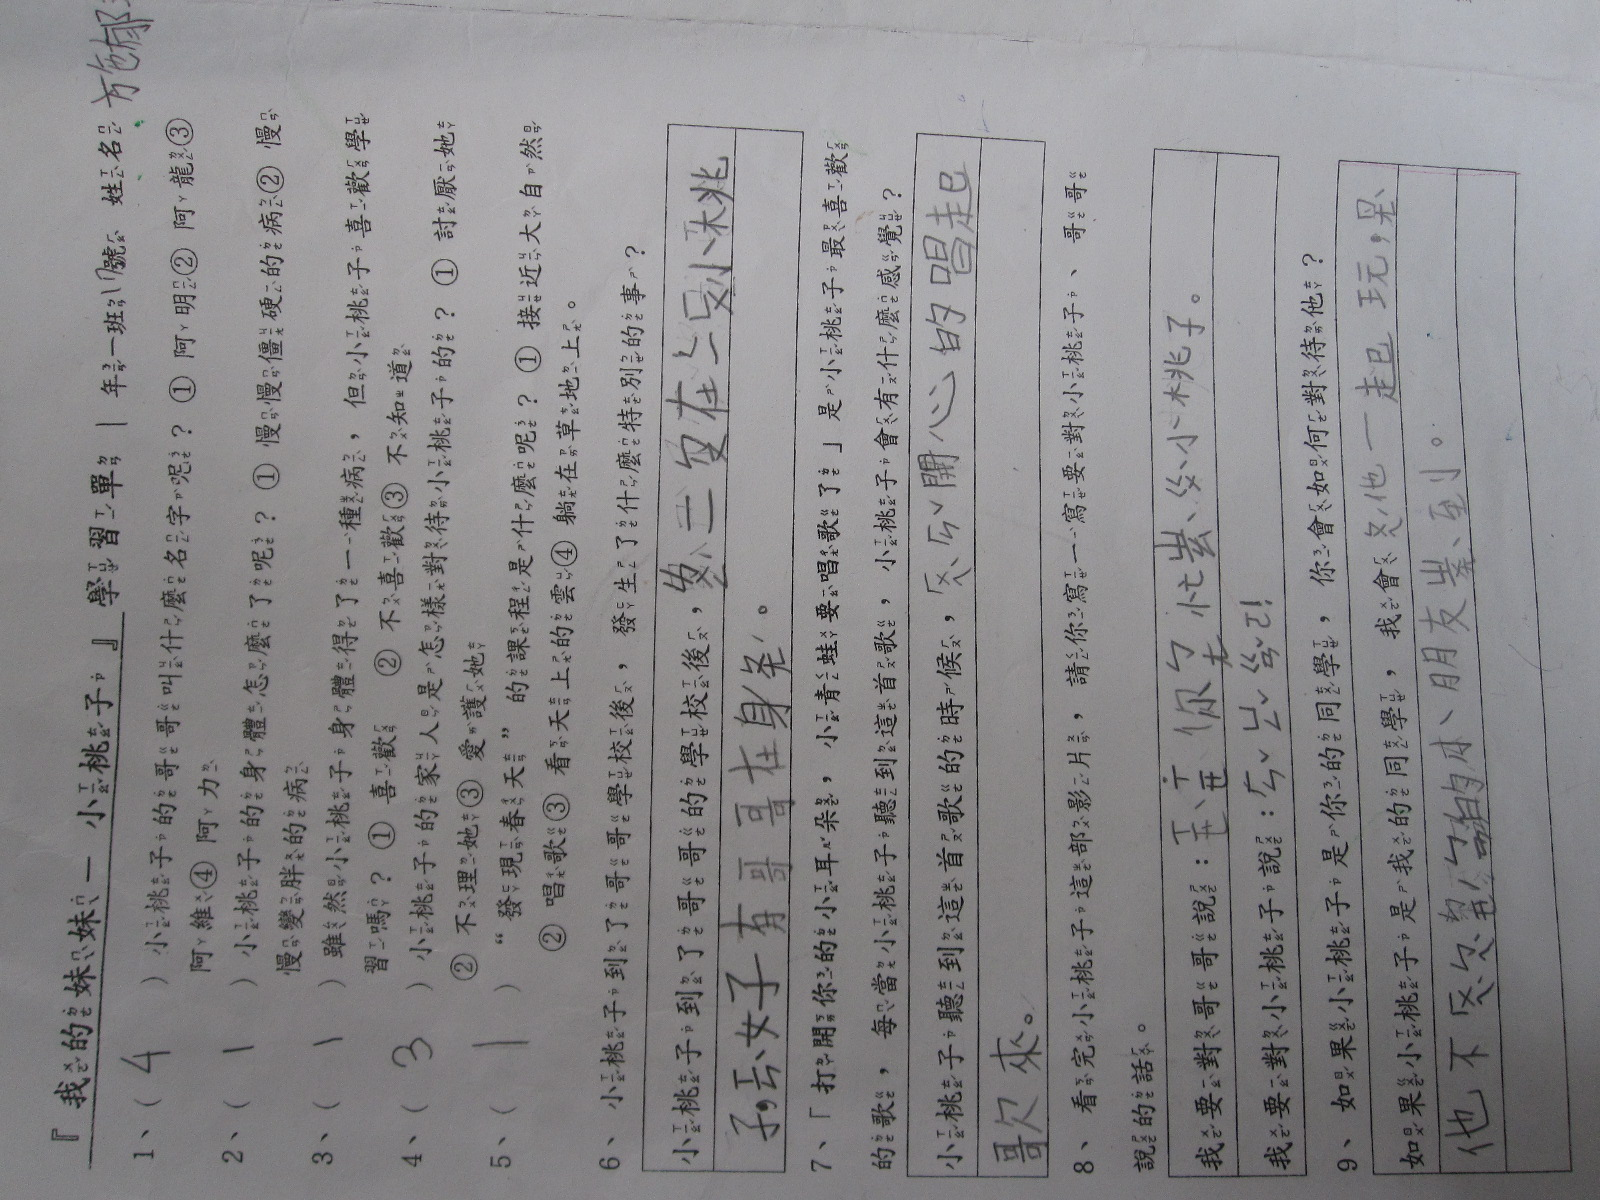 『我的妹妹—小桃子』學習單 一年一班11號 姓名
1、( 4 )小桃子的哥哥叫什麼名字呢？①阿明②阿龍③
阿維④阿力
2、( 1 )小桃子的身體怎麼了呢？①慢慢僵硬的病②慢
慢變胖的病
3、( 1 )雖然小桃子身體得了一種病，但小桃子喜歡學
習嗎？①喜歡②不喜歡③不知道
4、( 3 )小桃子的家人是怎樣對待小桃子的？①討厭她
②不理她③愛護她
5、( 1 )“發現春天”的課程是什麼呢？①接近大自然
②唱歌③看天上的雲④躺在草地上。
6、小桃子到了哥哥學校後，發生了什麼特別的事？
小桃子到了哥哥的學校後，
子，云女子有哥哥在身
7、「打開你的小耳朵，小青蛙要唱歌了」是小桃子最喜歡
的歌，每當小桃子聽到這首歌，小桃子會有什麼感覺？
小桃子聽到這首歌的時候，ㄏㄣˇ開心的唱起
哥欠來。
8、看完小桃子這部影片，請你寫一寫要對小桃子、哥哥
說的話。
我要對哥哥說：
我要對小桃子說：
9、如果小桃子是你的同學，你會如何對待他？
如果小桃子是我的同學，我會ㄆㄟˊ他一起玩，
他不